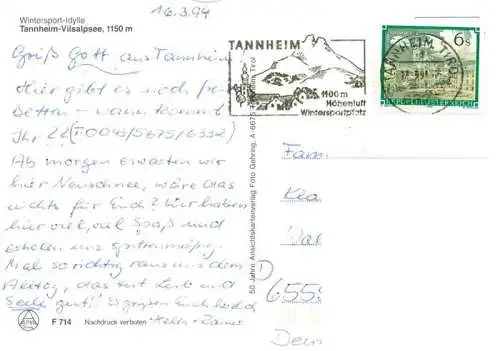 16.3.94
Wintersport-Idylle
Tannheim-Vilsalpsee, 1150 m
Grüß Gott aus Tannheim
Hier gibt es noch freie
Betten – wann kommt
Ihr (T 0043/5675/6332)
Ab morgen erwarten wir
hier Neuschnee, wäre das
nichts für Euch? Wir haben
hier viel, viel Spaß und
erholen uns spitzenmäßig.
Mal so richtig raus aus dem
Alltag, das tut Leib und
Seele gut! Es grüßen Euch herzlich
F 714
Nachdruck verboten
50 Jahre Ansichtskartenverlag Foto Gehring, A-6675 Tannheim, Tirol
TANNHEIM
1100 m
Höhenluft
Wintersportplatz
TANNHEIM, TIROL
6s
REPUBLIK ÖSTERREICH
Fam